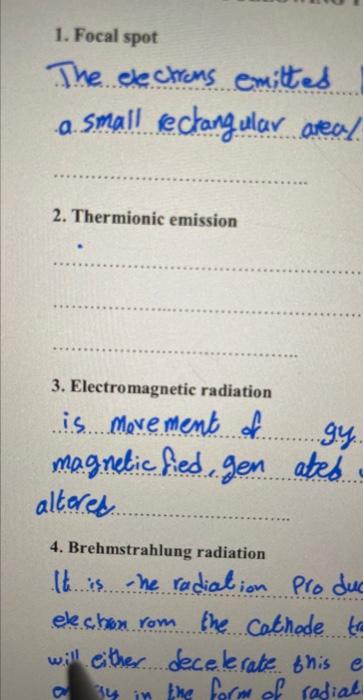 1. Focal spot
The electrons emitted
a small rectangular area/
2. Thermionic emission
3. Electromagnetic radiation
is movement of gy
magnetic fied, gen ated
altored
4. Brehmstrahlung radiation
It is he radiation produc
electron rom the cathode tr
will either decelerate this e
gy in the form of radiat